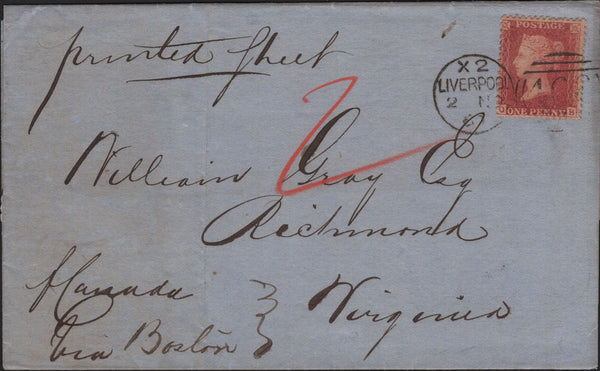 POSTAGE
X2
LIVERPOOL
2 N
466
ONE PENNY
printed Sheet
2
William Gray Esq
Richmond
Virginia
Canada
Via Boston